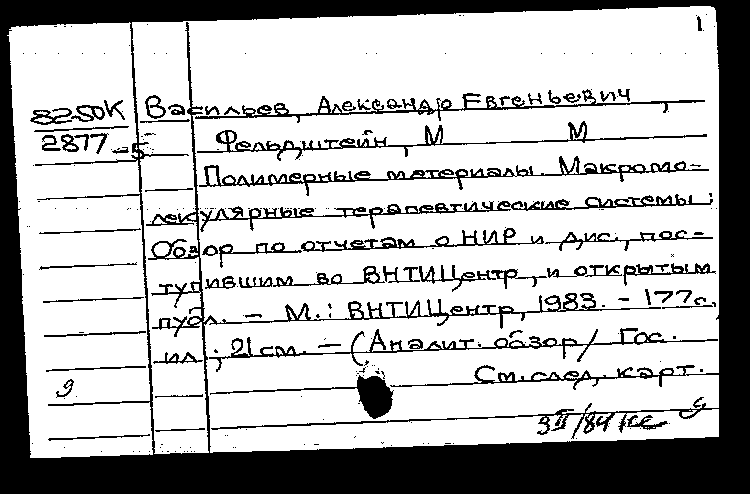 1
82-50К
2877-5
Васильев, Александр Евгеньевич,
Фельдштейн, М М
Полимерные материалы. Макромо-
лекулярные терапевтические системы:
Обзор по отчетам о НИР и дис., пос-
тупившим во ВНТИЦентр, и открытым
публ. - М.: ВНТИЦентр, 1983. - 177 с.,
ил.; 21 см. - (Аналит. обзор / Гос.
См. след. карт.
9
3 II/84